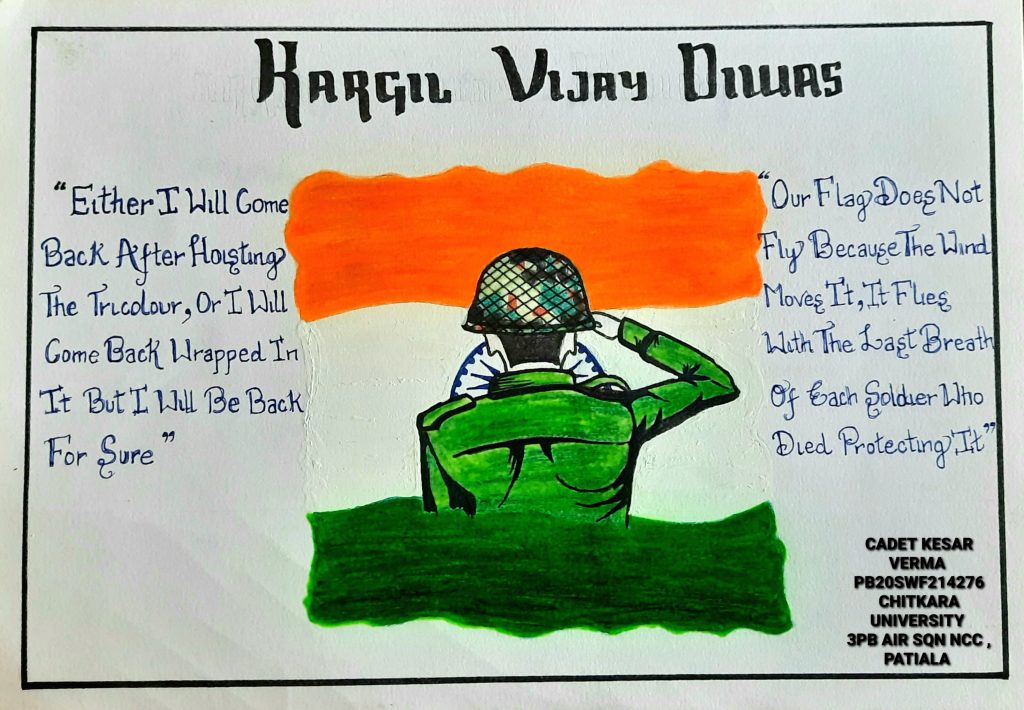 Kargil Vijay Diwas
“Either I Will Come
Back After Hoisting
The Tricolour, Or I Will
Come Back Wrapped In
It But I Will Be Back
For Sure”
“Our Flag Does Not
Fly Because The Wind
Moves It, It Flies
With The Last Breath
Of Each Soldier Who
Died Protecting It”
CADET KESAR
VERMA
PB20SWF214276
CHITKARA
UNIVERSITY
3PB AIR SQN NCC ,
PATIALA